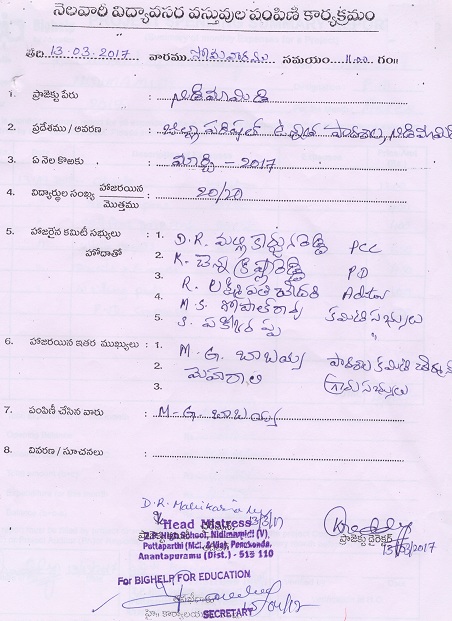 నెలవారీ విద్యావసర వస్తువుల పంపిణీ కార్యక్రమం
తేది: 13-03-2017 వారము సోమవారము సమయం 11.00 గం॥
1. ప్రాజెక్టు పేరు : నిడిమామిడి
2. ప్రదేశము / ఆవరణ : జిల్లా పరిషత్ ఉన్నత పాఠశాల, నిడిమామిడి
3. ఏ నెల కొఱకు : మార్చి - 2017
4. విద్యార్థుల సంఖ్య హాజరయిన : 20/20
మొత్తము
5. హాజరైన కమిటీ సభ్యులు : 1. D.R. మల్లికార్జునరెడ్డి PCC
హోదాతో 2. K. చెన్నక్రిష్ణారెడ్డి P.D
3. R. లక్ష్మీపతి చౌదరి
4. M.S. గోపాలరావు కమిటి సభ్యులు
5. "
6. హాజరయిన ఇతర ముఖ్యులు : 1. M.G. బాబయ్య పాఠశాల కమిటి
2. మెహరాలి గ్రామ సభ్యులు
3.
7. పంపిణీ చేసిన వారు : M-G. బాబయ్య
8. వివరణ / సూచనలు :
D.R. Mallikarjuna
Head Mistress 13/3/17
Z.P. High School, Nidimamidi (V),
Puttaparthi (Mdl, & Via), Penukonda,
Anantapuramu (Dist.) - 515 110
ప్రాజెక్టు డైరెక్టర్
13/03/2017
For BIGHELP FOR EDUCATION
SECRETARY